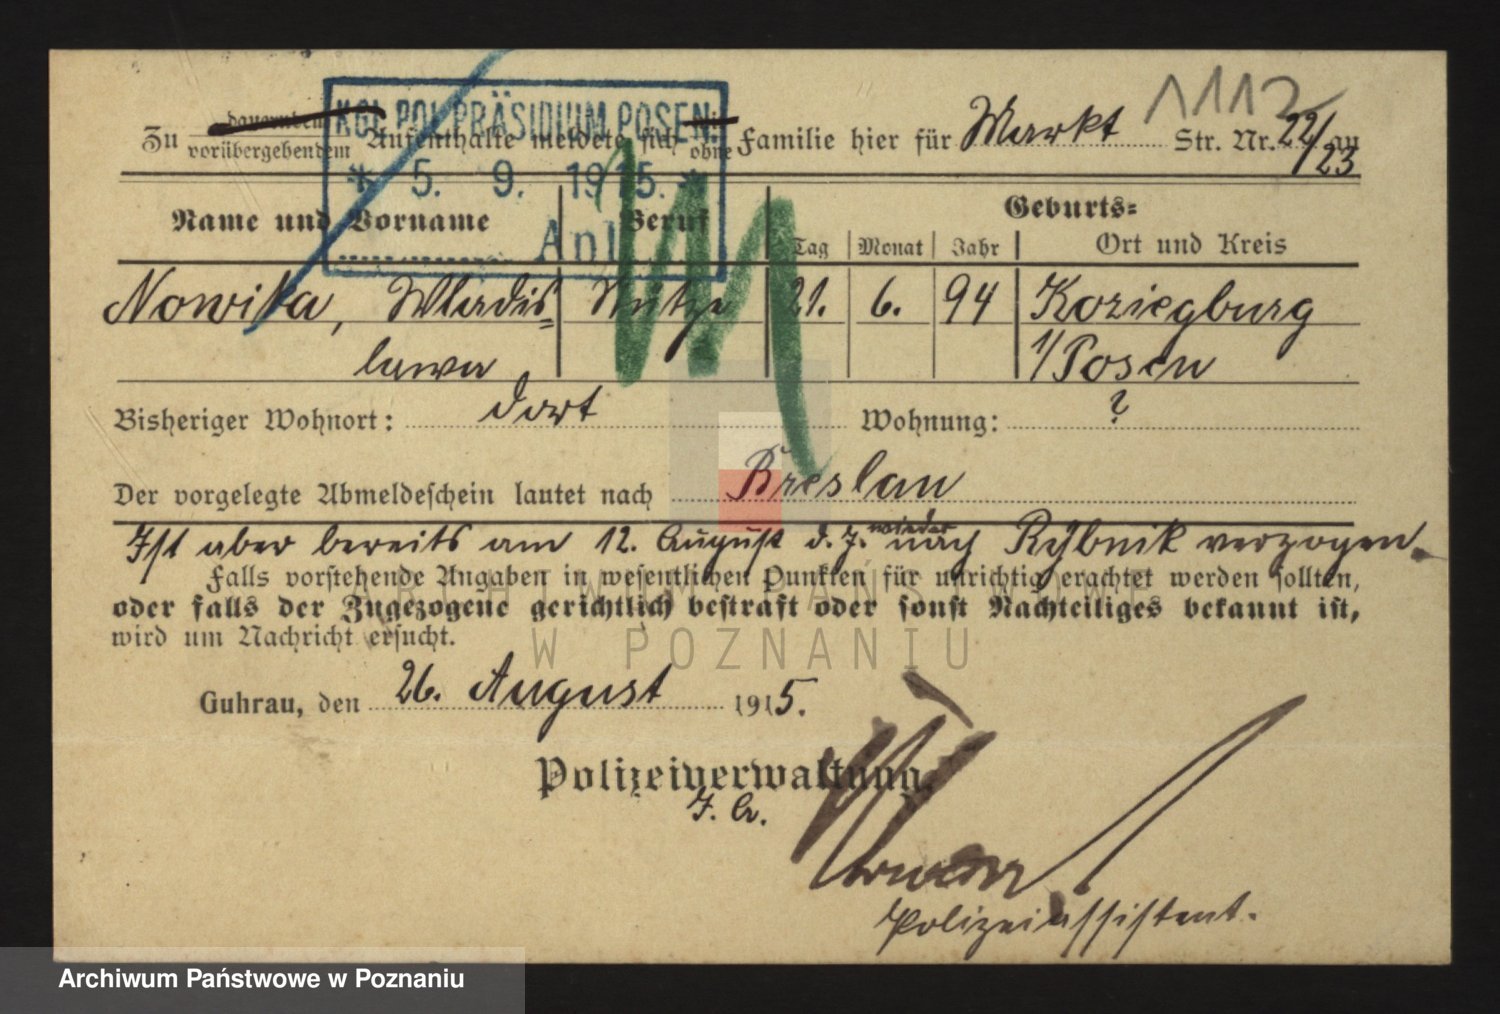 1112
KGL. POL. PRÄSIDIUM POSEN.
* 5. 9. 1915. *
Anl.
Zu dauerndem vorübergehendem Aufenthalte meldete sich mit ohne Familie hier für Markt Str. Nr. 22/23 an
Name und Vorname Beruf Geburts-
Tag Monat Jahr Ort und Kreis
Nowika, Wladis= 21. 6. 94 Koziegburg
lawa 1/Posen
Bisheriger Wohnort: dort Wohnung: ?
Der vorgelegte Abmeldeschein lautet nach Breslau
Ist aber bereits am 12. August d. J. wieder nach Rybnik verzogen.
Falls vorstehende Angaben in wesentlichen Punkten für unrichtig erachtet werden sollten,
oder falls der Zugezogene gerichtlich bestraft oder sonst Nachteiliges bekannt ist,
wird um Nachricht ersucht.
ARCHIWUM PAŃSTWOWE
W POZNANIU
Guhrau, den 26. August 1915.
Polizeiverwaltung.
J. A.
Polizeiassistent.
Archiwum Państwowe w Poznaniu